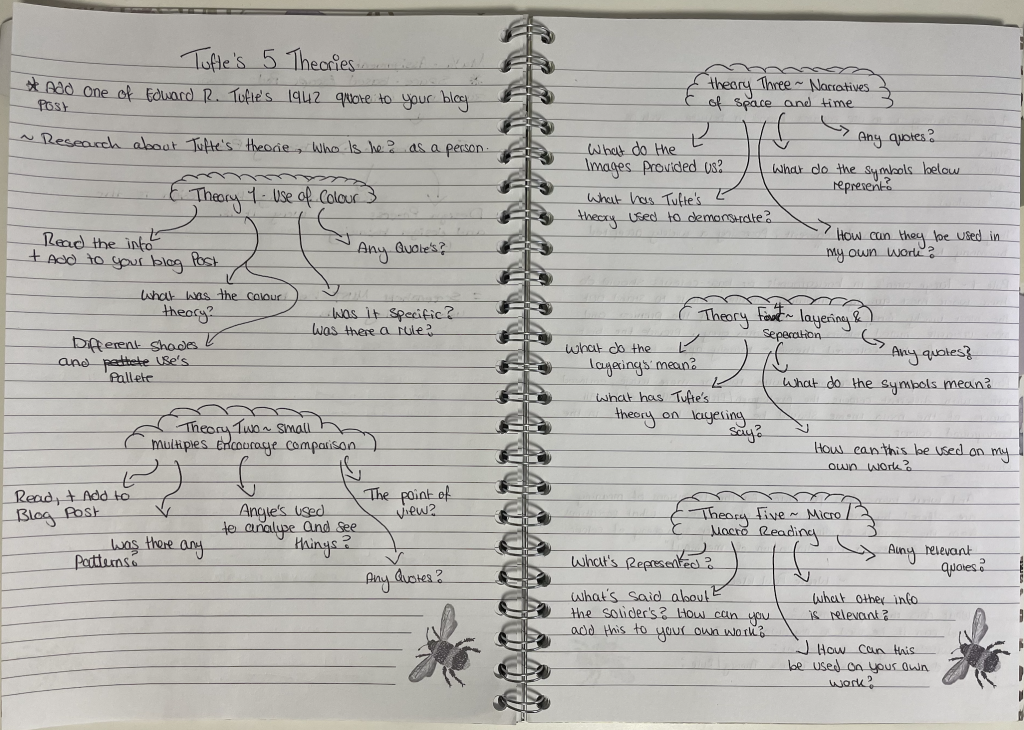 Tufte's 5 Theories
* Add one of Edward R. Tufte's 1942 quote to your blog
Post
~ Research about Tufte's theorie, who is he? as a person.
Theory 1 - Use of Colour
Read the info
+ Add to your blog Post
Any Quote's?
What was the colour
theory?
Was it specific?
Was there a rule?
Different shades
and pattete use's
Pallete
Theory Two ~ Small
multiples Encourage comparison
Read, + Add to
Blog Post
Was there any
Patterns?
Angle's used
to analyse and see
things?
The point of
view?
Any Quotes?
Theory Three ~ Narratives
of space and time
What do the
Images Provided us?
Any quotes?
What do the symbols below
represent?
What has Tufte's
theory used to demonstrate?
How can they be used in
my own work?
Theory 4 ~ layering &
Seperation
What do the
layering's mean?
Any quotes?
What do the symbols mean?
What has Tufte's
theory on layering
say?
How can this be used on my
own work?
Theory Five ~ Micro /
Macro Reading
What's Represented?
Any relevant
quotes?
What's said about
the soliders? How can you
add this to your own work?
What other info
is relevant?
How can this
be used on your own
work?